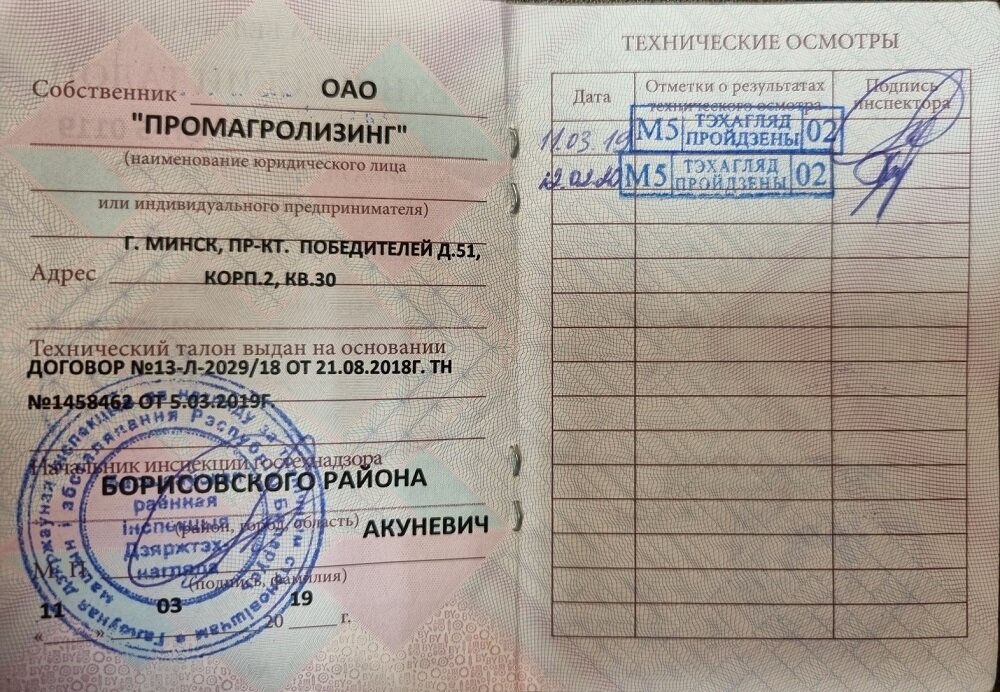 Собственник ОАО
"ПРОМАГРОЛИЗИНГ"
(наименование юридического лица
или индивидуального предпринимателя)
Г. МИНСК, ПР-КТ. ПОБЕДИТЕЛЕЙ Д.51,
Адрес КОРП.2, КВ.30
Технический талон выдан на основании
ДОГОВОР №13-Л-2029/18 ОТ 21.08.2018Г. ТН
№1458462 ОТ 5.03.2019Г.
Начальник инспекции гостехнадзора
БОРИСОВСКОГО РАЙОНА
(район, город, область)
АКУНЕВИЧ
М. П.
(подпись, фамилия)
11 03 2019 г.
раённая
інспекцыя
Дзяржтэх-
нагляда
ТЕХНИЧЕСКИЕ ОСМОТРЫ
Дата Отметки о результатах технического осмотра Подпись инспектора
11.03.19 М5 ТЭХАГЛЯД ПРОЙДЗЕНЫ 02
М5 ТЭХАГЛЯД ПРОЙДЗЕНЫ 02